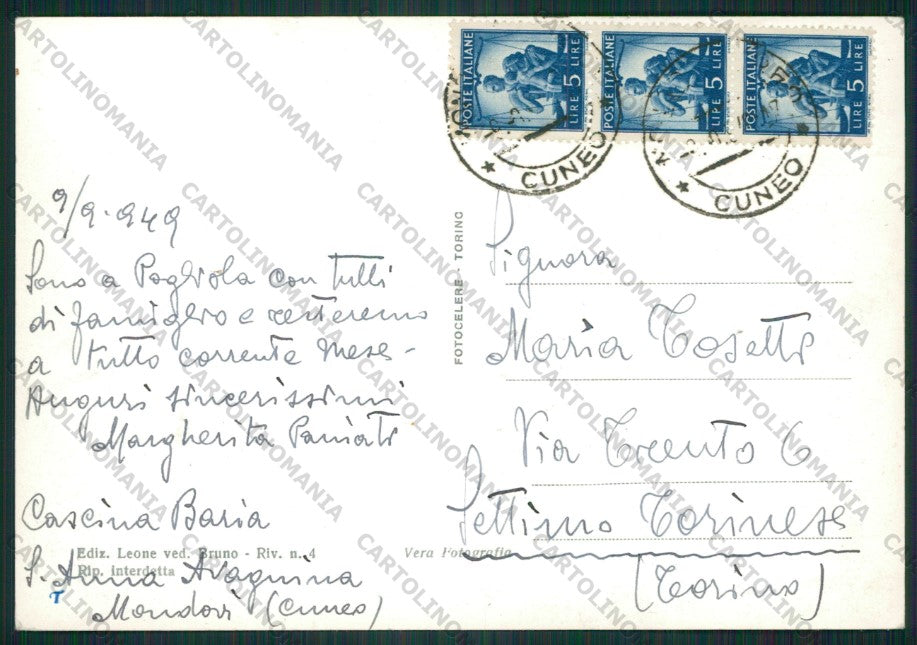 POSTE ITALIANE
LIRE 5 LIRE
POSTE ITALIANE
LIRE 5 LIRE
POSTE ITALIANE
LIRE 5 LIRE
CUNEO
CUNEO
9/9.949
Sono a Pogliola con tutti
di famiglia e resteremo
a tutto corrente mese-
Auguri sincerissimi
Margherita
Cascina Baria
Ediz. Leone ved. Bruno - Riv. n. 4
Rip. interdetta
S. Anna Avagnina
Mondovì (Cuneo)
T
FOTOCELERE - TORINO
Vera Fotografia
Signora
Maria Tosetti
Via Trento 6
Settimo Torinese
(Torino)
CARTOLINOMANIA